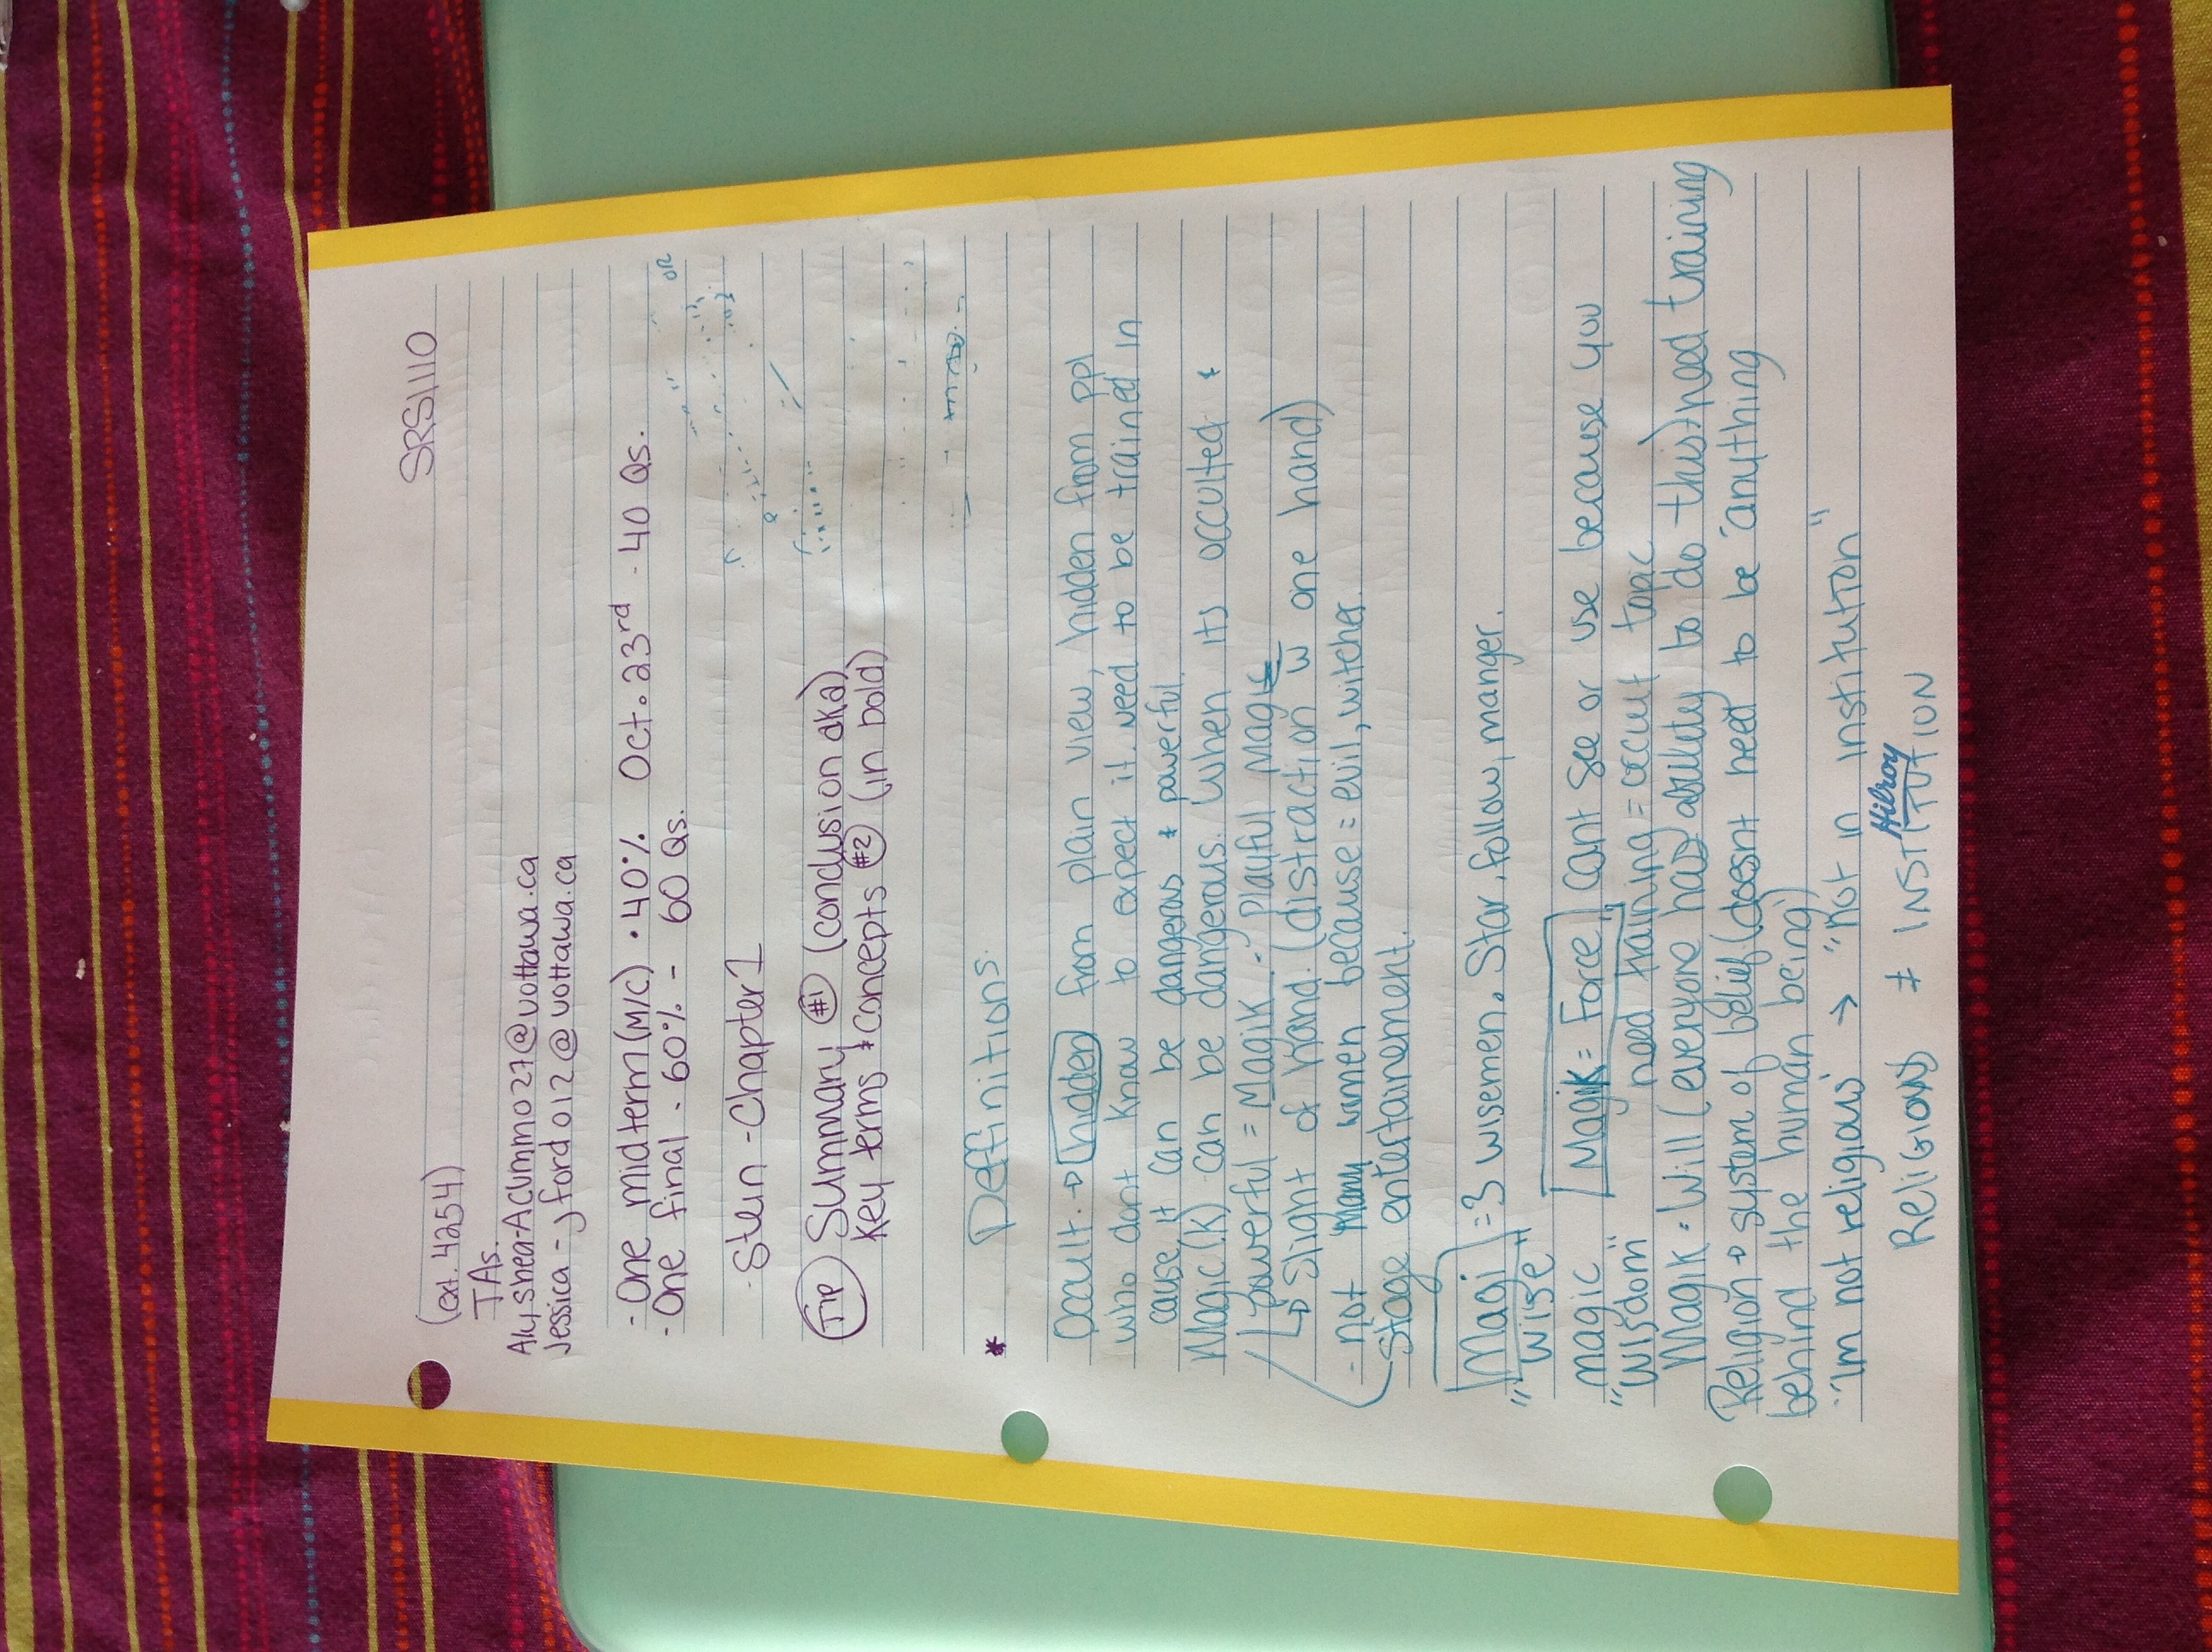 SRS1110
(ext. 4254)
TAs.
Alyshea-Acummo27@uottawa.ca
Jessica - jford012@uottawa.ca
- One midterm (M/C) • 40% Oct. 23rd - 40 Qs.
- One final - 60% - 60 Qs.
OR
- Stein - Chapter 1
Tip Summary #1 (conclusion aka)
Key terms & concepts #2 (in bold)
* Definitions.
Occult → hidden from plain view, hidden from ppl
who dont know to expect it. need to be trained in
cause it can be dangerous & powerful.
Magic(K) can be dangerous. When its occulted &
powerful = Magik - Playful Magic
↳ Slight of hand. (distraction w one hand)
- not Many women because = evil, witches.
Stage entertainement.
Magi = 3 wisemen. Star, follow, manger.
"wise"
magic Magik = Force cant see or use because you
"wisdom" need training = occult topic
Magik - Will (everyone has ability to do this) need training
Religion → system of belief (doesnt need to be anything
behind the human being)
- "im not religious" → "Not in institution"
Hilroy
RELIGIONS ≠ INSTITUTION